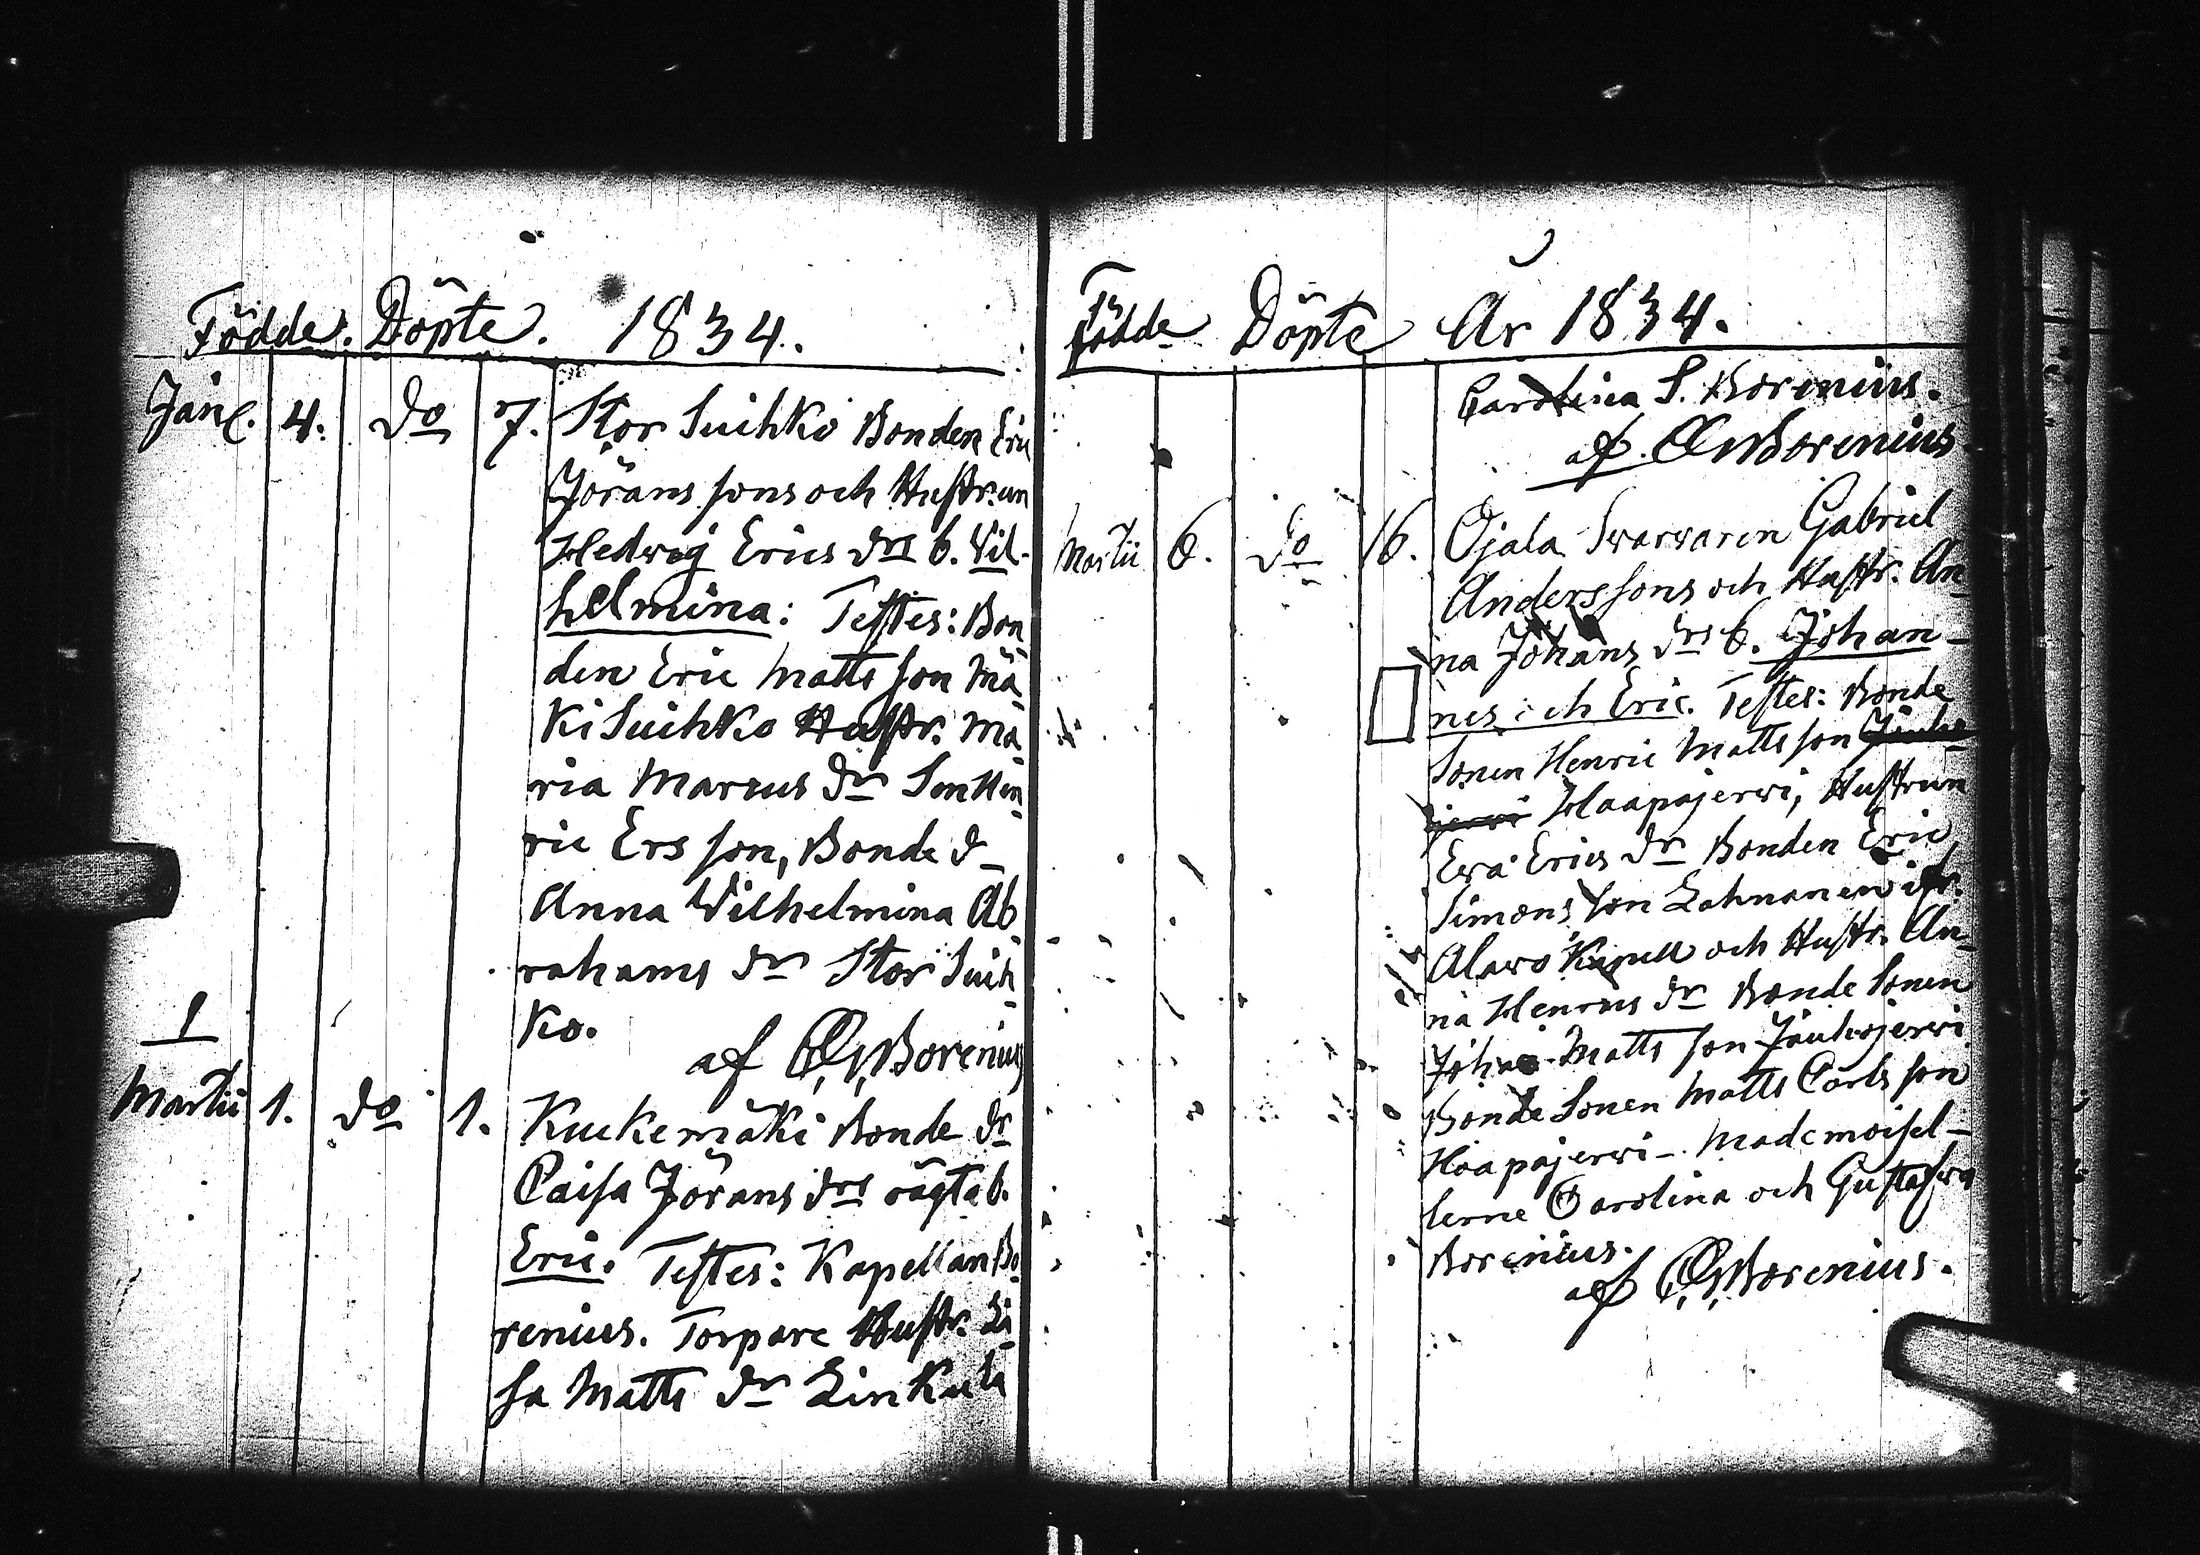 Födde. Döpte. 1834.
Jan. 4. do 7. Stor Suihko Bonden Eric
Jörans sons och Hustrun
Hedwig Erics drs b. Vil-
helmina: Testes: Bon
den Eric Matts son Mä
ki Suihko Hustr. Ma
ria Marcus dr Son Hen
ric Ers son, Bonde d
Anna Wilhelmina Ab
rahams dr Stor Suih
ko.
af Borenius
1
Martii 1. do 1. Kuckemäki Bonde dr
Caisa Jörans drs oägta b.
Eric. Testes: Kapellan Bo
renius. Torpare Hustr. Li
sa Matts dr Linkula
Födde Döpte År 1834.
Carolina S. Borenius.
af. Borenius
Martii 6. do 16. Ojala Swarwaren Gabriel
Anders sons och Hustr. An
na Johans drs b. Johan-
nes och Eric. Testes: Bonde
Sonen Henric Matts son Jouho
jerwi Haapajerwi, Hustrun
Ewa Erics dr Bonden Eric
Simons son Lahnanen ifr.
Alawo Kapell och Hustr. An
na Henrics dr Bonde Sonen
Johan Matts son Jouhojerwi
Bonde Sonen Matts Carls son
Haapajerwi - Mademoisel-
lerne Carolina och Gustafwa
Borenius.
af Borenius.